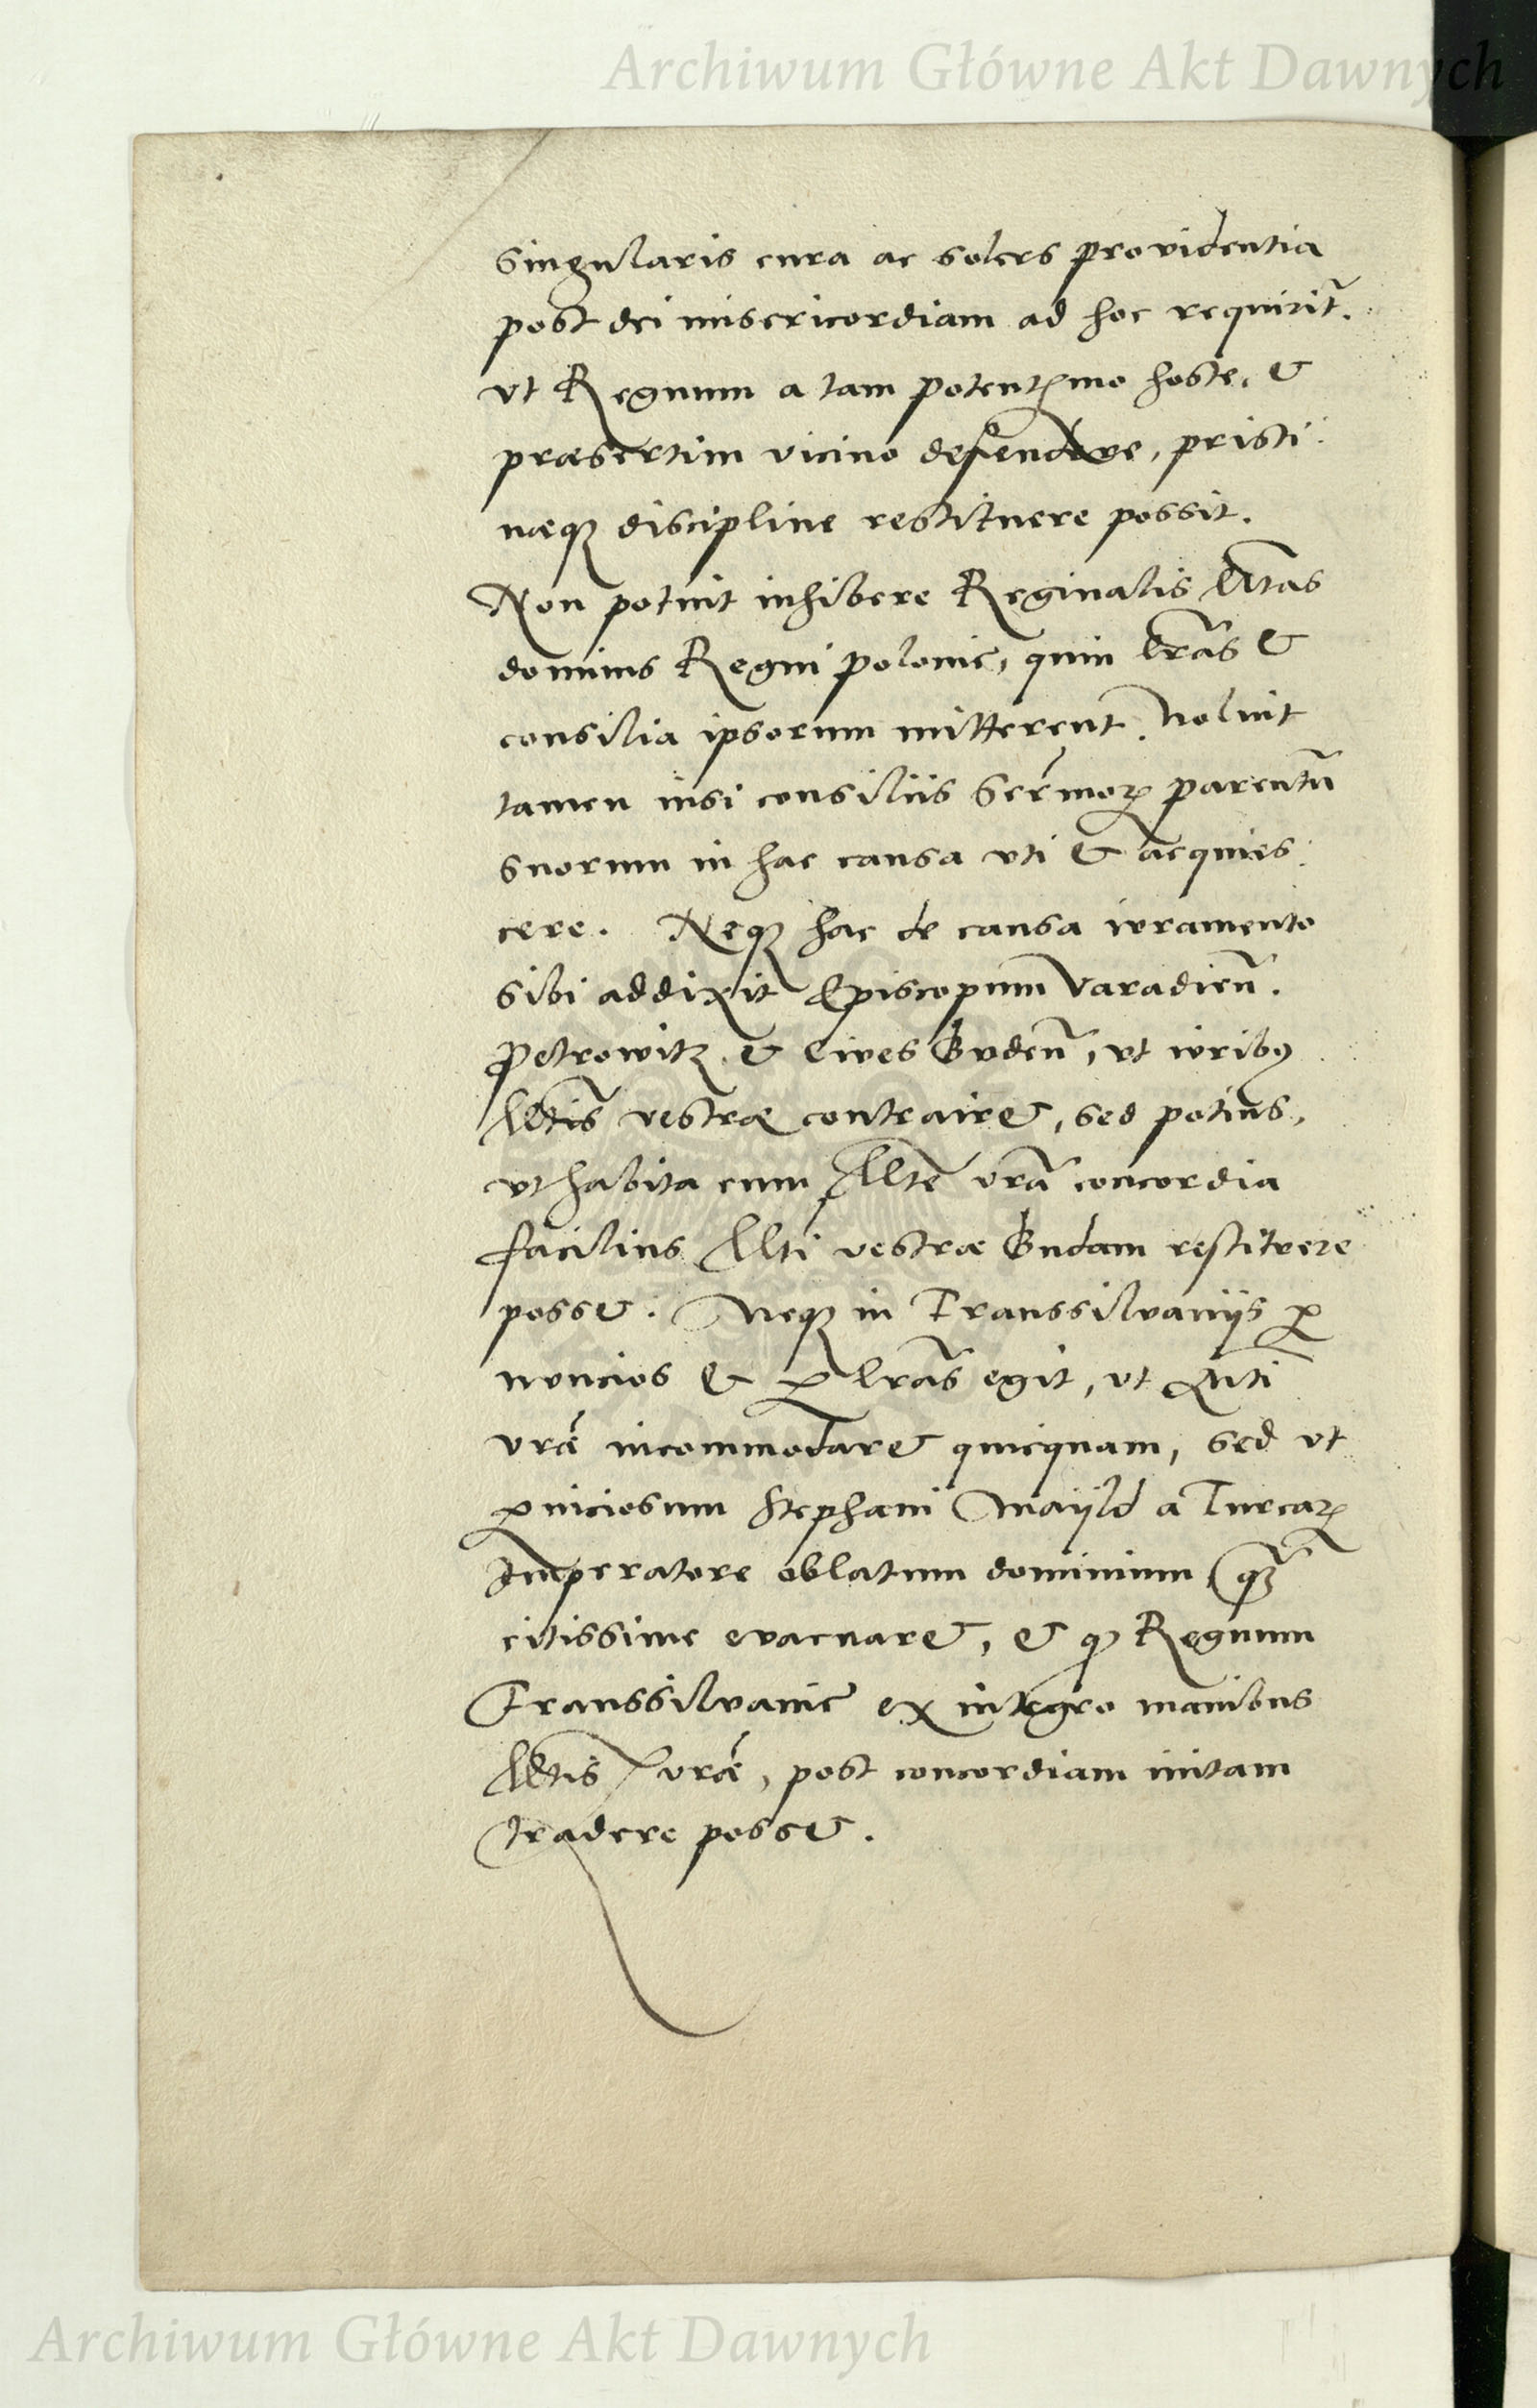 Archiwum Główne Akt Dawnych
Singularis cura ac solers providentia
post dei misericordiam ad hoc requirit̃.
vt Regnum a tam potentͥmo hoste, et
præsertim vicino defendere, pristi:
næqꝫ discipline restituere possit.
Non potuit inhibere Reginalis Mtas
dominis Regni polonie, quin lrãs et
consilia ipsorum mitterent. Noluit
tamen nisi consiliis Serͤmoꝝ parentũ
suorum in hac causa vti et acquies:
cere. Neqꝫ hac de causa iuramento
sibi addixit Episcopum Varadieñ.
Petrowitz. et Ciues Budeñ, vt iuribꝰ
Mtis vestræ contrairet, sed potius,
vt habita cum Mte vrã concordia
facilius Mti vestræ Budam restituere
posset. Neqꝫ in Transsiluaniis ꝑ
nuncios et ꝑ lrãs egit, vt Mti
vræ̃ incommodaret quicquam, sed vt
ꝑniciosum Stephani Maijld a Turcaꝝ
Imperatore oblatum dominium qꝫ̃
citissime euacuaret, et ꝙ Regnum
Transsiluanie ex integro manibus
Mtis vræ̃, post concordiam initam
tradere posset.
Archiwum Główne Akt Dawnych